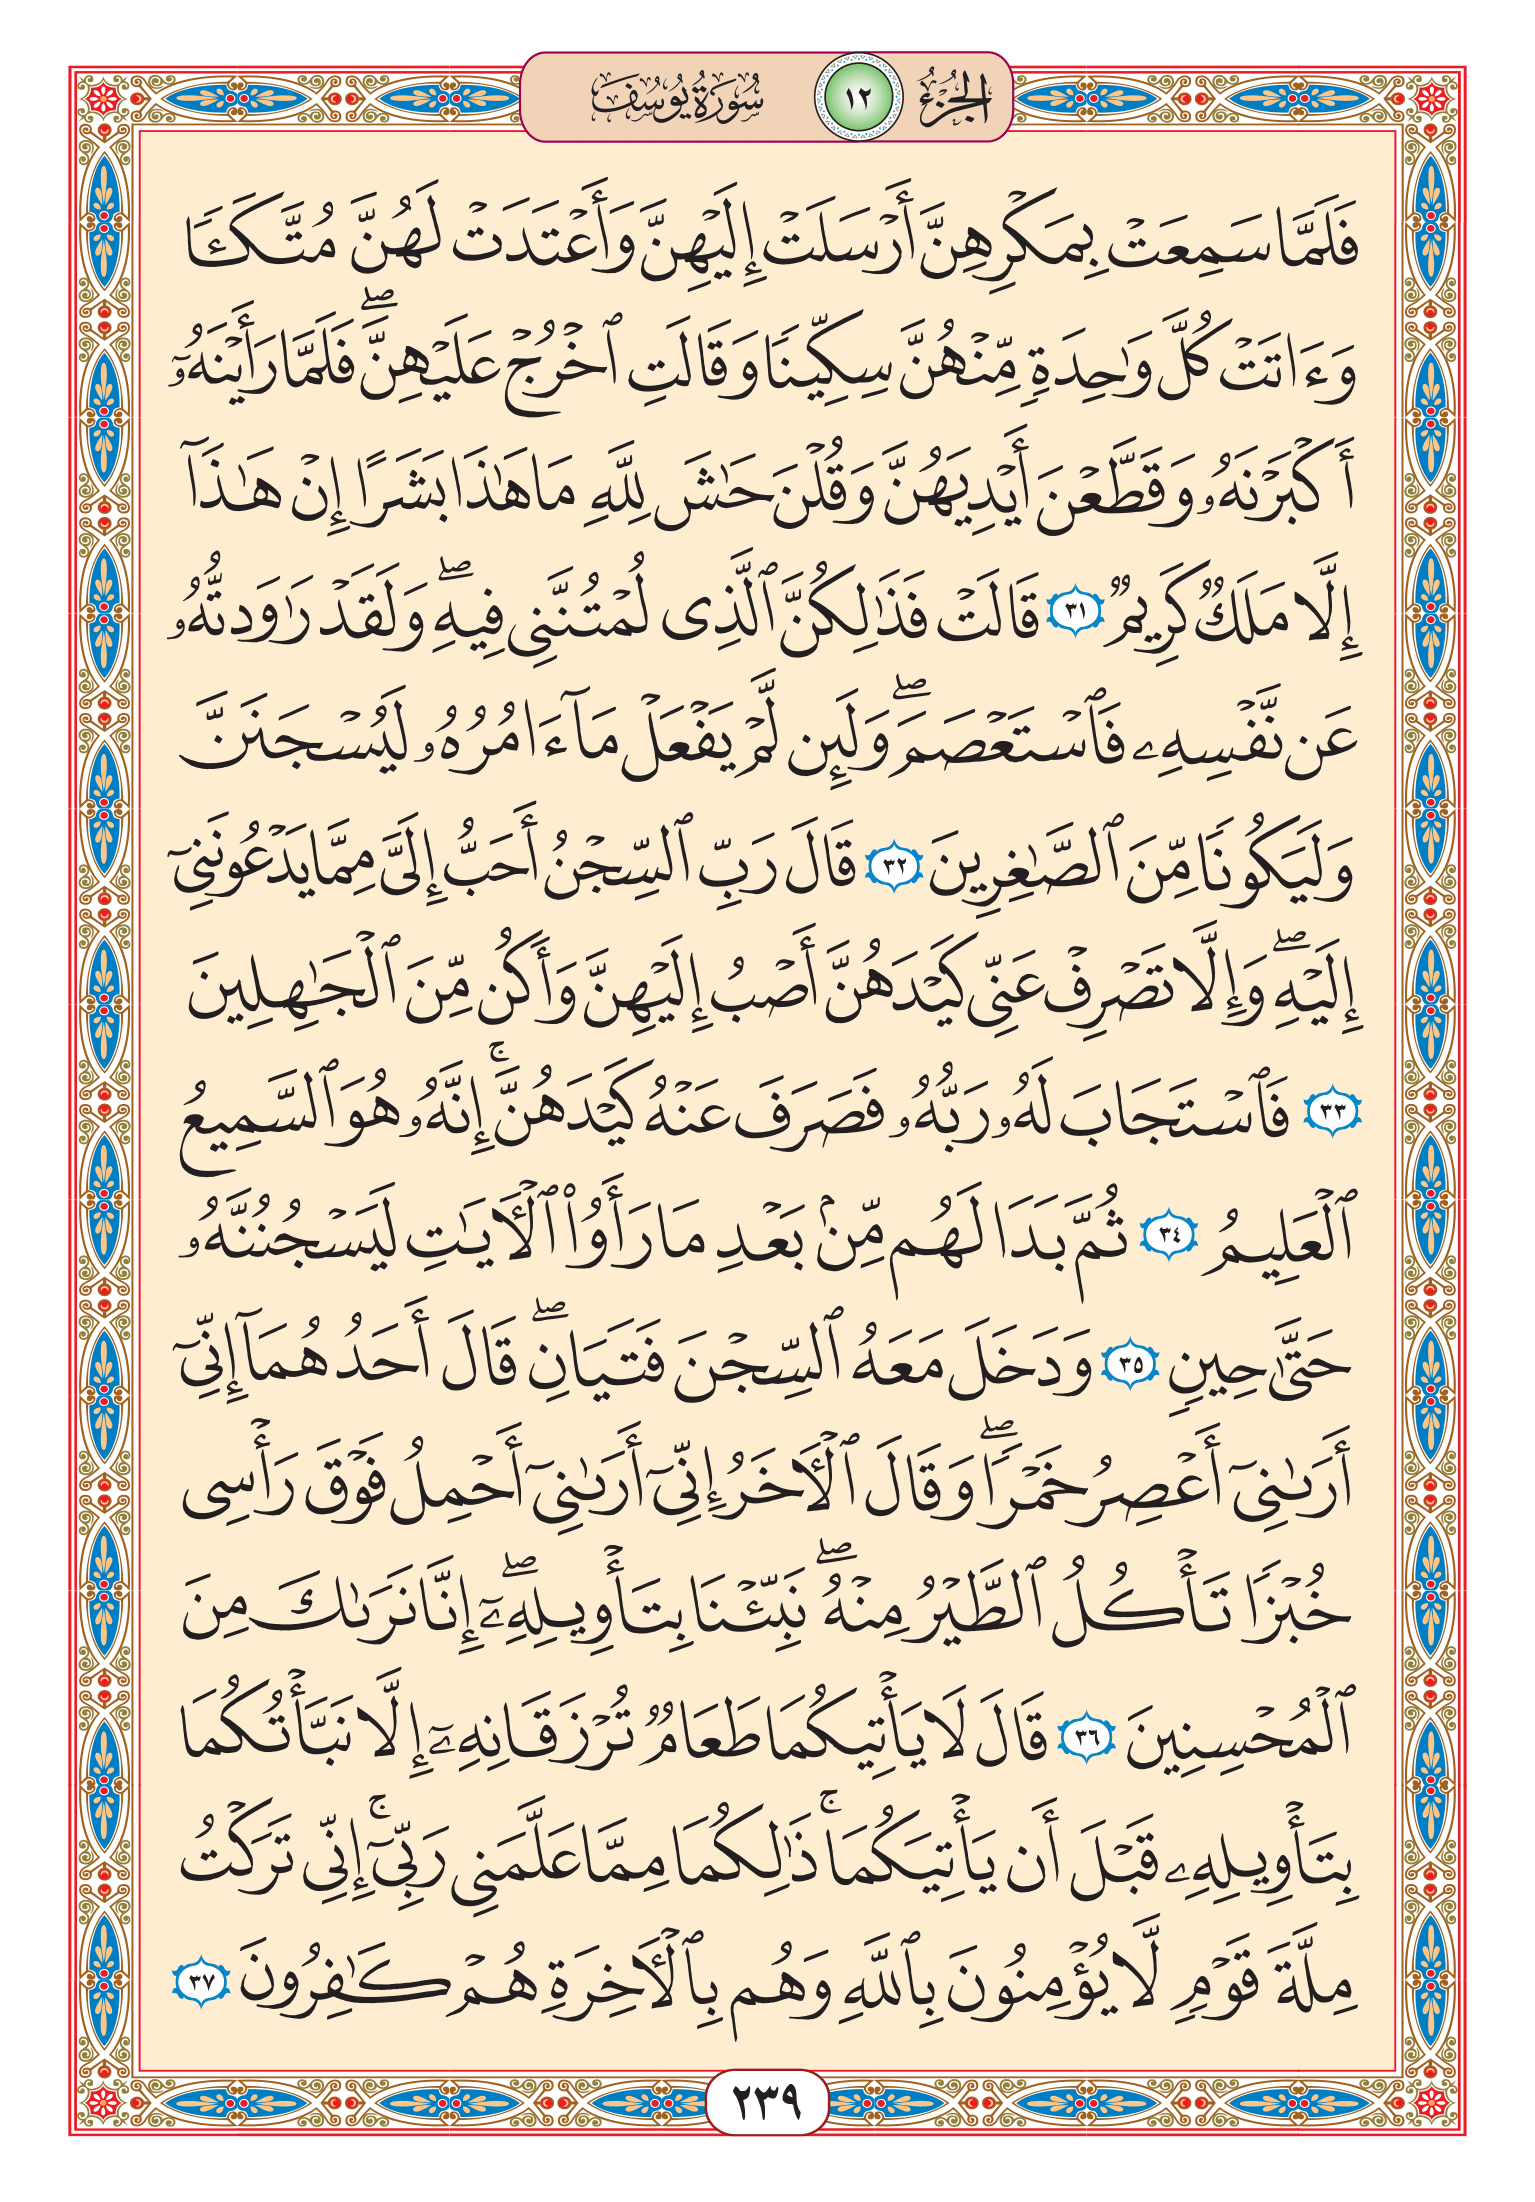 الجزء ١٢ سورة يوسف
فَلَمَّا سَمِعَتْ بِمَكْرِهِنَّ أَرْسَلَتْ إِلَيْهِنَّ وَأَعْتَدَتْ لَهُنَّ مُتَّكَـًٔا
وَءَاتَتْ كُلَّ وَٰحِدَةٍ مِّنْهُنَّ سِكِّينًا وَقَالَتِ ٱخْرُجْ عَلَيْهِنَّ ۖ فَلَمَّا رَأَيْنَهُۥٓ
أَكْبَرْنَهُۥ وَقَطَّعْنَ أَيْدِيَهُنَّ وَقُلْنَ حَٰشَ لِلَّهِ مَا هَٰذَا بَشَرًا إِنْ هَٰذَآ
إِلَّا مَلَكٌ كَرِيمٌ ٣١ قَالَتْ فَذَٰلِكُنَّ ٱلَّذِى لُمْتُنَّنِى فِيهِ ۖ وَلَقَدْ رَٰوَدتُّهُۥ
عَن نَّفْسِهِۦ فَٱسْتَعْصَمَ ۖ وَلَئِن لَّمْ يَفْعَلْ مَآ ءَامُرُهُۥ لَيُسْجَنَنَّ
وَلَيَكُونًا مِّنَ ٱلصَّٰغِرِينَ ٣٢ قَالَ رَبِّ ٱلسِّجْنُ أَحَبُّ إِلَىَّ مِمَّا يَدْعُونَنِىٓ
إِلَيْهِ ۖ وَإِلَّا تَصْرِفْ عَنِّى كَيْدَهُنَّ أَصْبُ إِلَيْهِنَّ وَأَكُن مِّنَ ٱلْجَٰهِلِينَ
٣٣ فَٱسْتَجَابَ لَهُۥ رَبُّهُۥ فَصَرَفَ عَنْهُ كَيْدَهُنَّ ۚ إِنَّهُۥ هُوَ ٱلسَّمِيعُ
ٱلْعَلِيمُ ٣٤ ثُمَّ بَدَا لَهُم مِّنۢ بَعْدِ مَا رَأَوُا۟ ٱلْـَٔايَٰتِ لَيَسْجُنُنَّهُۥ
حَتَّىٰ حِينٍ ٣٥ وَدَخَلَ مَعَهُ ٱلسِّجْنَ فَتَيَانِ ۖ قَالَ أَحَدُهُمَآ إِنِّىٓ
أَرَىٰنِىٓ أَعْصِرُ خَمْرًا ۖ وَقَالَ ٱلْـَٔاخَرُ إِنِّىٓ أَرَىٰنِىٓ أَحْمِلُ فَوْقَ رَأْسِى
خُبْزًا تَأْكُلُ ٱلطَّيْرُ مِنْهُ ۖ نَبِّئْنَا بِتَأْوِيلِهِۦٓ ۖ إِنَّا نَرَىٰكَ مِنَ
ٱلْمُحْسِنِينَ ٣٦ قَالَ لَا يَأْتِيكُمَا طَعَامٌ تُرْزَقَانِهِۦٓ إِلَّا نَبَّأْتُكُمَا
بِتَأْوِيلِهِۦ قَبْلَ أَن يَأْتِيَكُمَا ۚ ذَٰلِكُمَا مِمَّا عَلَّمَنِى رَبِّىٓ ۚ إِنِّى تَرَكْتُ
مِلَّةَ قَوْمٍ لَّا يُؤْمِنُونَ بِٱللَّهِ وَهُم بِٱلْـَٔاخِرَةِ هُمْ كَٰفِرُونَ ٣٧
٢٣٩